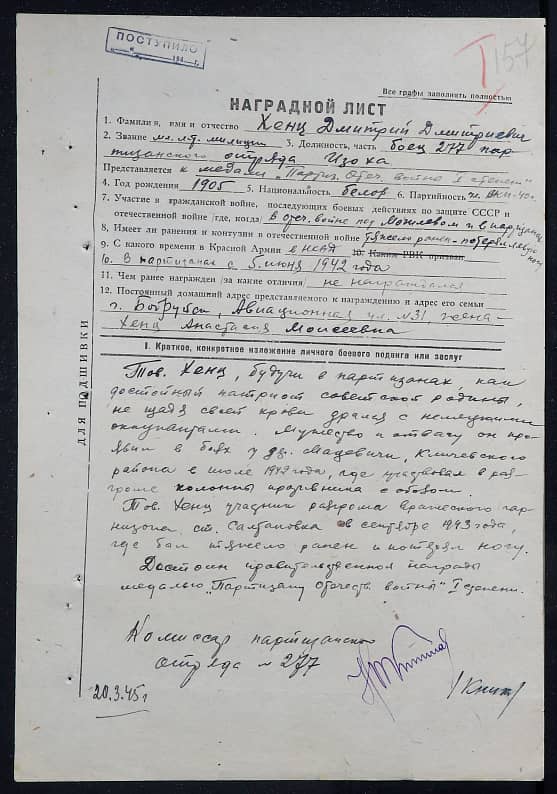 ПОСТУПИЛО
194 г.
157
Все графы заполнить полностью
НАГРАДНОЙ ЛИСТ
1. Фамилия, имя и отчество Хенц Дмитрий Дмитриевич
2. Звание мл. л-т. милиции 3. Должность, часть боец 277 пар-
тизанского отряда Изоха
Представляется к медали „Партиз. Отеч. войны I степени"
4. Год рождения 1905 5. Национальность белор 6. Партийность
7. Участие в гражданской войне, последующих боевых действиях по защите СССР и
отечественной войне /где, когда/ в отеч. войне под Могилевом и в партизанах
8. Имеет ли ранения и контузии в отечественной войне тяжело ранен - потерял левую ногу
9. С какого времени в Красной Армии 10. Каким РВК призван
10. В партизанах с 5 июня 1942 года
11. Чем ранее награжден /за какие отличия/ не награждался
12. Постоянный домашний адрес представляемого к награждению и адрес его семьи
г. Бобруйск, Авиационная ул. №31 жена-
Хенц Анастасия Моисеевна
I. Краткое, конкретное изложение личного боевого подвига или заслуг
ДЛЯ ПОДШИВКИ
Тов. Хенц, будучи в партизанах, как
достойный патриот советской родины,
не щадя своей крови дрался с немецкими
оккупантами. Мужество и отвагу он про-
явил в боях у дер. Кличевского
района в июле 1942 года, где участвовал в раз-
громе колонны противника с обозом.
Тов. Хенц участник разгрома вражеского гар-
низона ст. Салтановка в сентябре 1943 года,
где был тяжело ранен и потерял ногу.
Достоин правительственной награды
медалью „Партизану отечеств. войны" I степени.
Комиссар партизанского
отряда №277
20.3.45 г